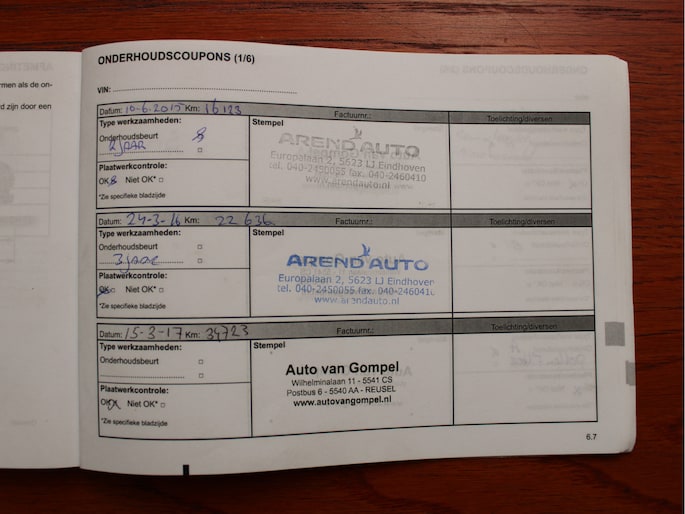 AFMETING
rmen als de on-
d zijn door een
ONDERHOUDSCOUPONS (1/6)
VIN:
Datum: 10-6-2015 Km: 16123 Factuurnr.: Toelichting/diversen
Type werkzaamheden:
Onderhoudsbeurt
2 JAAR
Plaatwerkcontrole:
OK Niet OK*
*Zie specifieke bladzijde
Stempel
AREND AUTO
Europalaan 2, 5623 LJ Eindhoven
tel. 040-2450055 fax. 040-2460410
www.arendauto.nl
Datum: 24-3-16 Km: 22 636 Factuurnr.: Toelichting/diversen
Type werkzaamheden:
Onderhoudsbeurt
3 JAAR
Plaatwerkcontrole:
OK Niet OK*
*Zie specifieke bladzijde
Stempel
AREND AUTO
Europalaan 2, 5623 LJ Eindhoven
tel. 040-2450055 fax. 040-2460410
www.arendauto.nl
Datum: 15-3-17 Km: 34723 Factuurnr.: Toelichting/diversen
Type werkzaamheden:
Onderhoudsbeurt
Plaatwerkcontrole:
OK Niet OK*
*Zie specifieke bladzijde
Stempel
Auto van Gompel
Wilhelminalaan 11 - 5541 CS
Postbus 6 - 5540 AA - REUSEL
www.autovangompel.nl
6.7